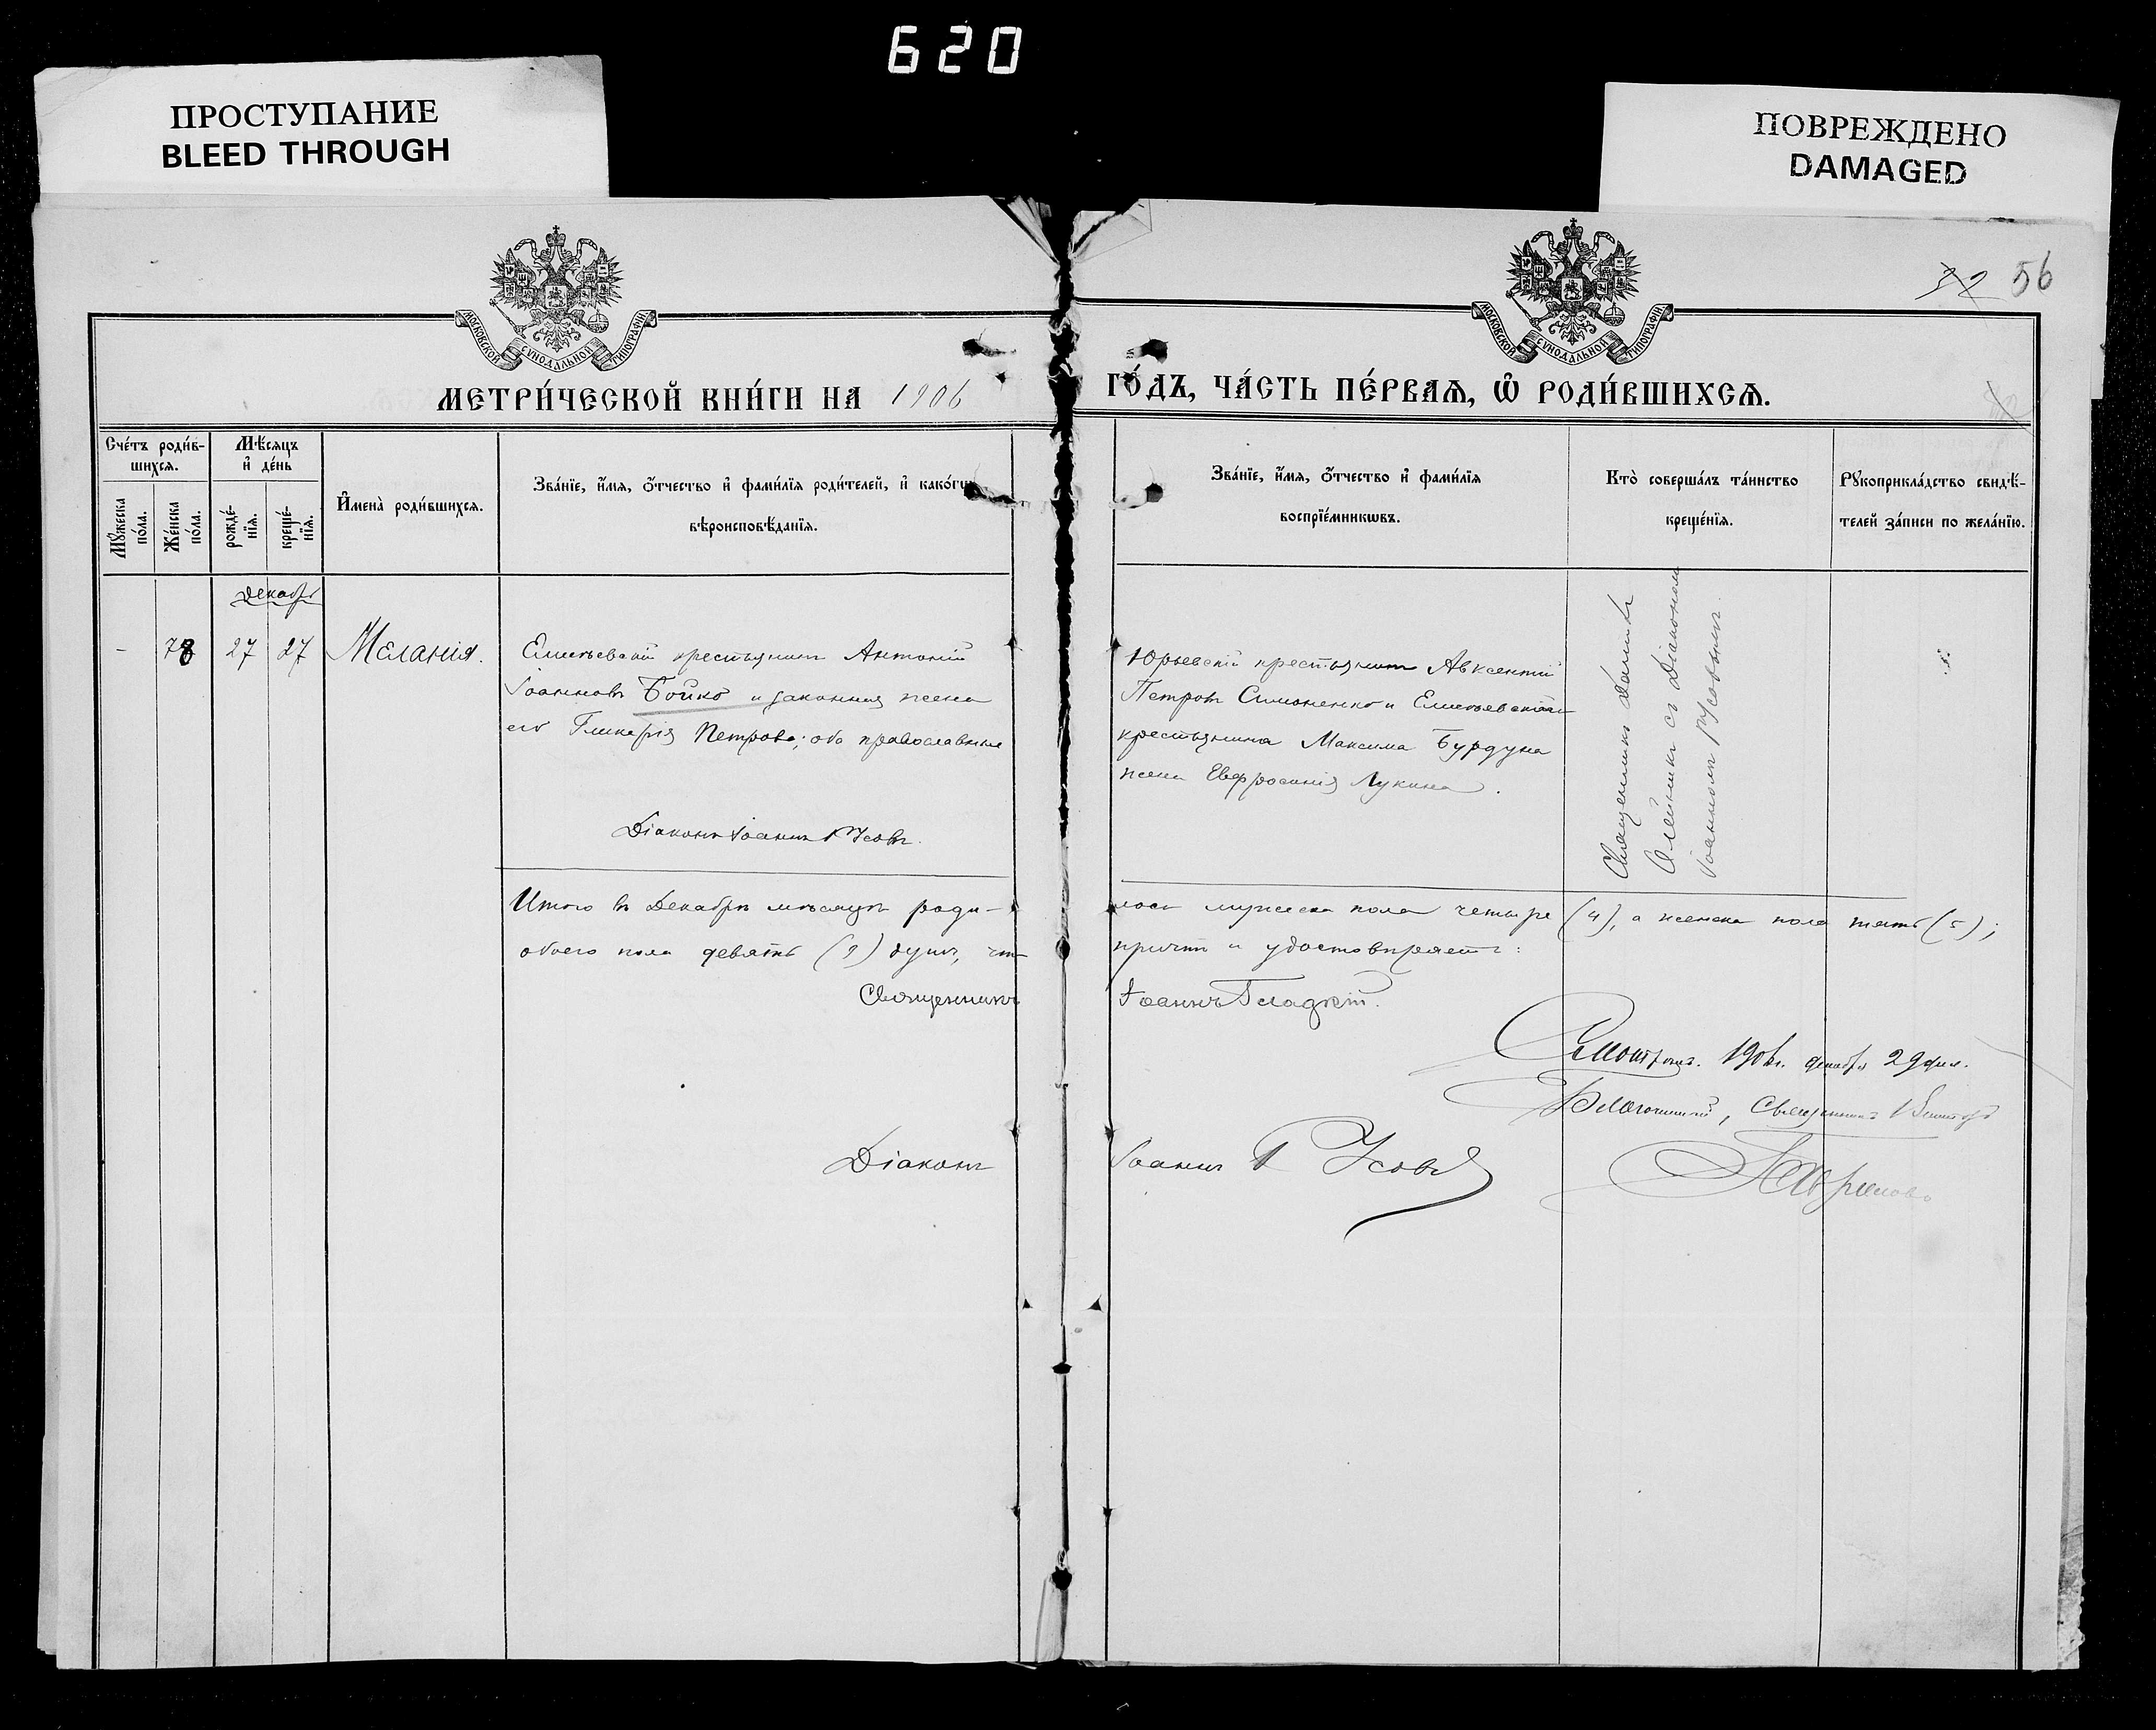 620
ПРОСТУПАНИЕ
BLEED THROUGH
ПОВРЕЖДЕНО
DAMAGED
32 56
МОСКОВСКОЙ СѴНОДАЛЬНОЙ ТИПОГРАФІИ
МОСКОВСКОЙ СѴНОДАЛЬНОЙ ТИПОГРАФІИ
МЕТРИ́ЧЕСКОЙ КНИ́ГИ НА 1906 ГО́ДЪ, ЧА́СТЬ ПЕ́РВАѦ, Ѡ РОДИ́ВШИХСѦ.
Сче́тъ роди́в-
шихсѧ.
Мꙋ́жеска по́ла.
Же́нска по́ла.
Мѣ́сѧцъ
и҆ де́нь
рожде́-
нїѧ.
креще́-
нїѧ.
И҆мена̀ роди́вшихсѧ.
Зва́нїе, и҆́мѧ, ѻ҆́тчество и҆ фами́лїѧ роди́телей, и҆ како́гѡ
вѣроисповѣ́данїѧ.
Зва́нїе, и҆́мѧ, ѻ҆́тчество и҆ фами́лїѧ
воспрїе́мникѡвъ.
Кто̀ соверша́лъ та́инство
креще́нїѧ.
Рꙋкоприкла́дство свидѣ́-
телей за́писи по жела́нїю.
Декабрь
- 78 27 27 Меланія.
крестьянинъ Антоній
Іоанновъ Бойко и законная жена
его Гликерія Петрова; оба православные
Діаконъ Іоаннъ Усовъ.
Юрьевскій крестьянинъ Авксентій
Петровъ Симоненко и
крестьянина Максима Бурдуна
жена Евфросинія Лукина.
Священникъ
съ Діакономъ
Іоанномъ Усовымъ.
Итого въ Декабрѣ мѣсяцѣ роди-
лось мужеска пола четыре (4), а женска пола пять (5);
обоего пола девять (9) душъ, что
причтъ и удостовѣряетъ:
Священникъ Іоаннъ Гладкій.
Смотрѣлъ. 1906 г. декабря 29 дня.
Благочинный, Священникъ Викторъ
Діаконъ Іоаннъ Усовъ